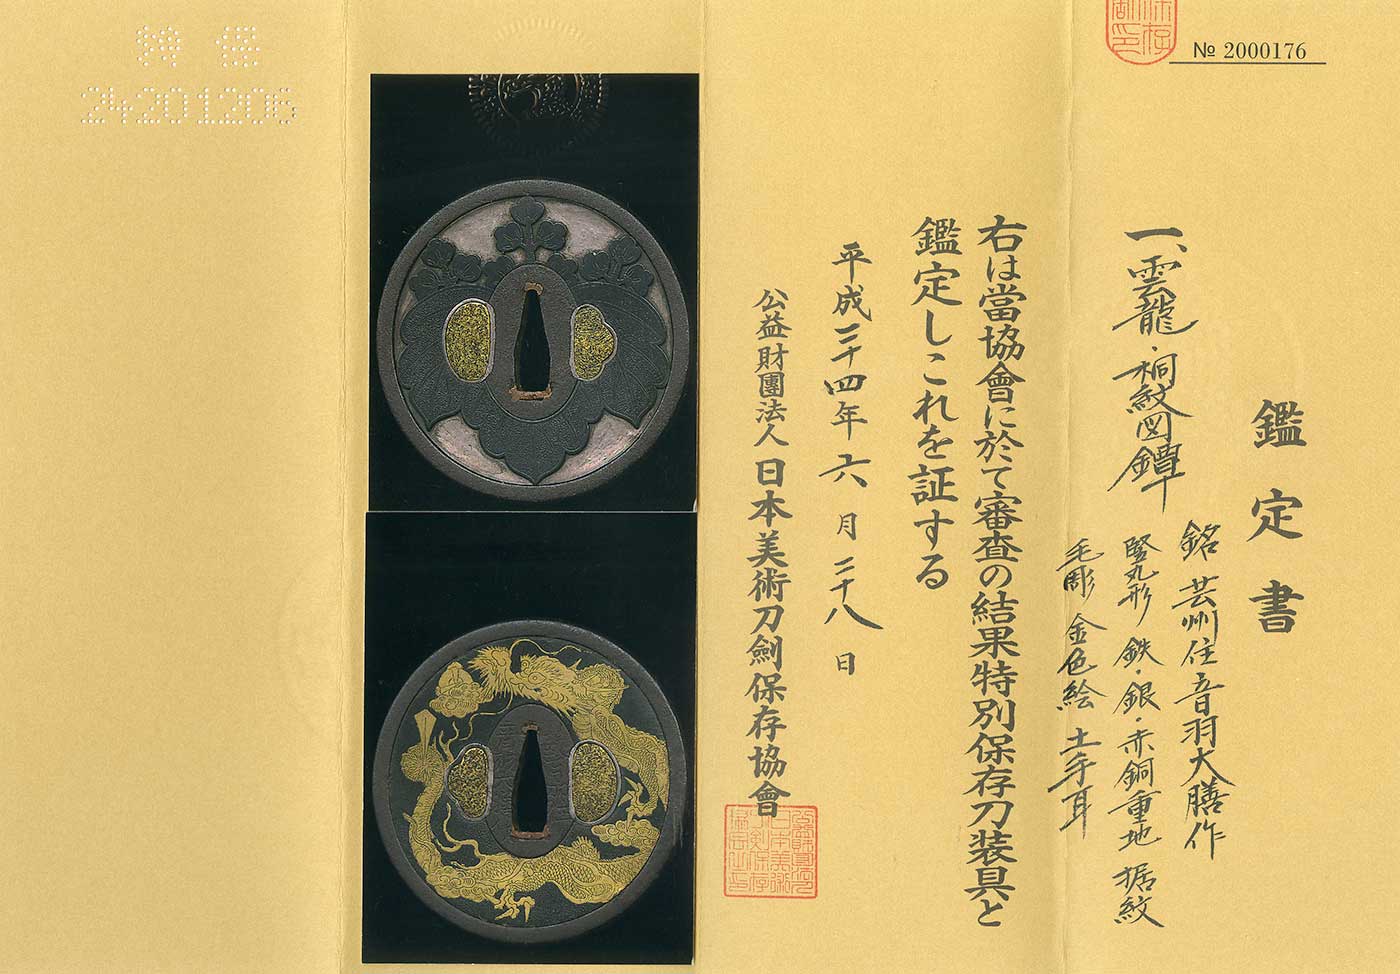 № 2000176
鑑定書
一、雲龍・桐紋図鐔
銘 芸州住音羽大膳作
竪丸形 鉄・銀・赤銅重地 据紋
毛彫 金色絵 土手耳
右は當協會に於て審査の結果特別保存刀装具と
鑑定しこれを証する
平成二十四年六月二十八日
公益財團法人日本美術刀劍保存協會
特保
24201206